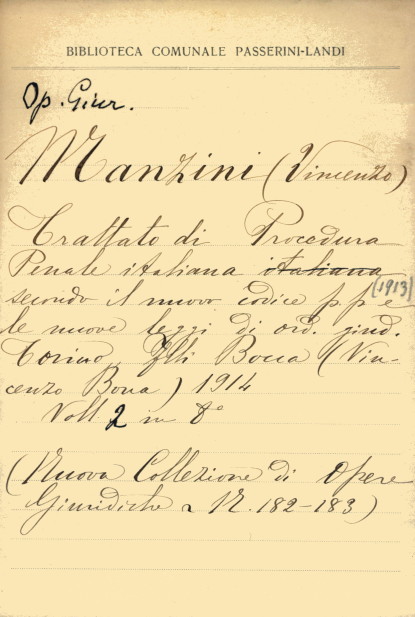 BIBLIOTECA COMUNALE PASSERINI-LANDI
Op. Giur.
Manzini (Vincenzo)
Trattato di Procedura
Penale italiana italiana
(1913)
secondo il nuovo codice p p e
le nuove leggi di ord. giud.
Torino, Flli Bocca (Vin-
cenzo Bona) 1914
Voll 2 in 8°
(Nuova Collezione di Opere
Giuridiche N. 182-183)